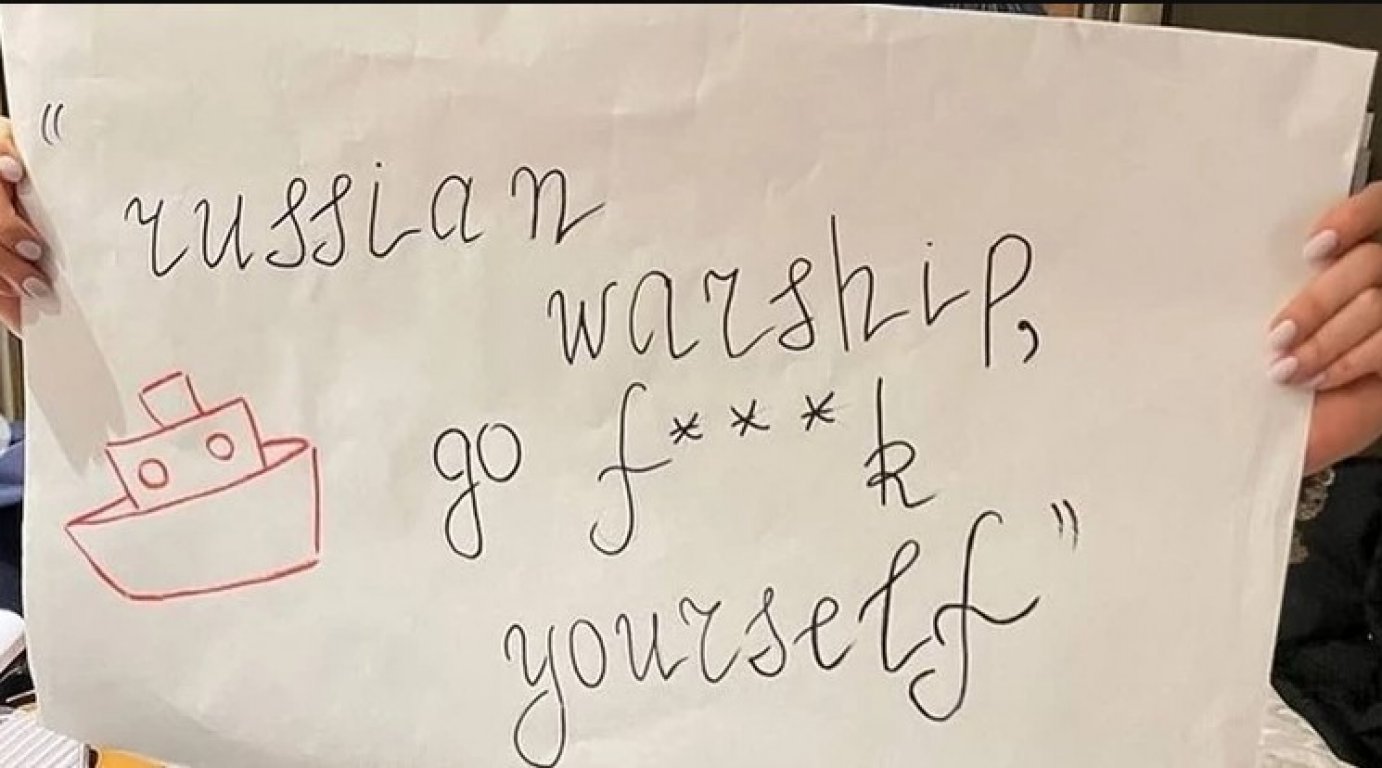 "russian
warship,
go f***k
yourself"